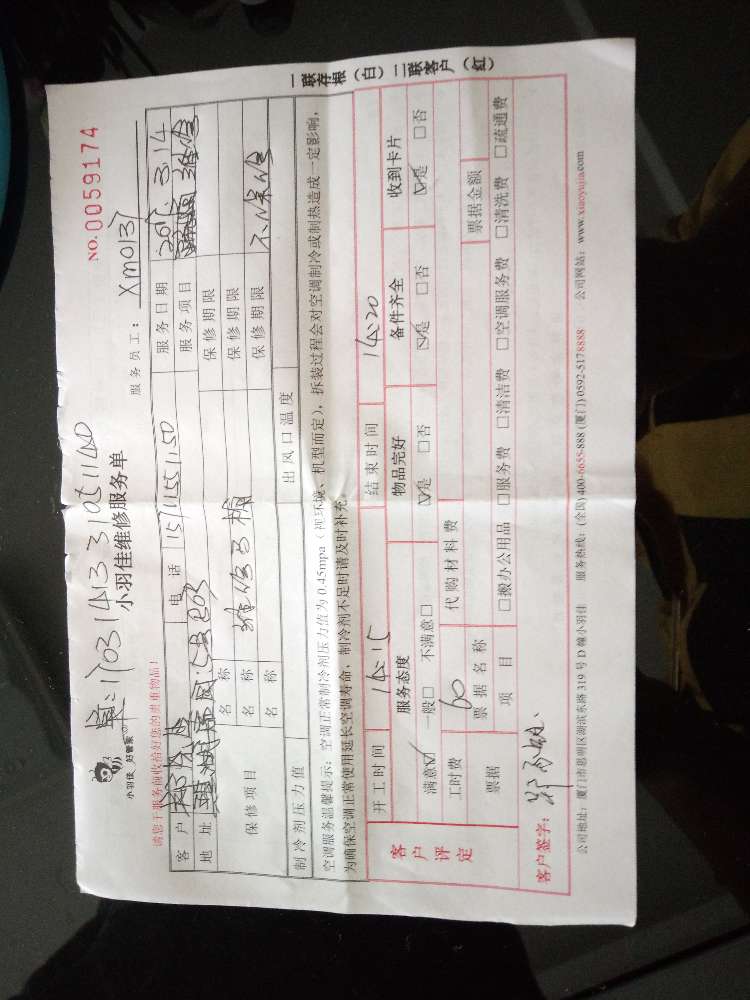 单:1703141331051140
NO.0059174
小羽佳 好管家
小羽佳维修服务单
服务员工: Xm0137
请您于服务前收拾好您的贵重物品!
客户 电话 15711551150 服务日期 2017.3.14
地址 服务项目 维修
保修项目 名称 保修期限
名称 维修马桶 保修期限
名称 保修期限 不保修
制冷剂压力值 出风口温度
空调服务温馨提示: 空调正常制冷剂压力值为0.45mpa(视环境、机型而定), 拆装过程会对空调制冷或制热造成一定影响,
为确保空调正常使用延长空调寿命, 制冷剂不足时请及时补充。
客户评定
开工时间 14:15 结束时间 14:20
服务态度 物品完好 备件齐全 收到卡片
满意☑ 一般□ 不满意□ ☑是 □否 ☑是 □否 ☑是 □否
工时费 60 代购材料费
票据 票据名称 票据金额
项目 □搬办公用品 □服务费 □清洁费 □空调服务费 □清洗费 □疏通费
客户签字:
公司地址: 厦门市思明区湖滨东路319号D幢小羽佳 服务热线: (全国)400-6655-888 (厦门)0592-5178888 公司网站: www.xiaoyujia.com
一联存根(白)二联客户(红)